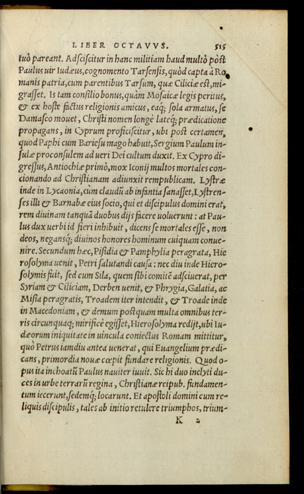 LIBER OCTAVVS. 515
tuò pareant. Adsciscitur in hanc militiam haud multò pòst
Paulus uir Iudæus, cognomento Tarsensis, quòd capta à Ro
manis patria, cum parentibus Tarsum, quæ Ciliciæ est, mi-
grasset. Is tam consilio bonus, quàm Mosaicæ legis peritus,
& ex hoste factus religionis amicus, eaq; sola armatus, se
Damasco mouet, Christi nomen longè lateq; prædicatione
propagans, in Cyprum proficiscitur, ubi post certamen,
quod Paphi cum Bariesu mago habuit, Sergium Paulum in-
sulæ proconsulem ad ueri Dei cultum duxit. Ex Cypro di-
gressus, Antiochiæ primò, mox Iconij multos mortales con-
cionando ad Christianam adiunxit rempublicam. Lystræ
inde in Lycaonia, cum claudũ ab infantia sanasset, Lystren-
ses illi & Barnabæ eius socio, qui et discipulus domini erat,
rem diuinam tanquã duobus dijs facere uoluerunt: at Pau-
lus dux uerbi id fieri inhibuit, dicens se mortales esse, non
deos, negansq; diuinos honores hominum cuiquam conue-
nire. Secundum hæc, Pisidia & Pamphylia peragrata, Hie
rosolyma uenit, Petri salutandi causa: nec diu inde Hiero-
solymis fuit, sed cum Sila, quem sibi comitẽ adsciuerat, per
Syriam & Ciliciam, Derben uenit, & Phrygia, Galatia, ac
Misia peragratis, Troadem iter intendit, & Troade inde
in Macedoniam, & demum postquam multa omnibus ter-
ris circunquaq; mirificè egisset, Hierosolyma redijt, ubi Iu-
dæorum iniquitate in uincula coniectus Romam mittitur,
quò Petrus iamdiu antea uenerat, qui Euangelium prædi-
cans, primordia noua cœpit fundare religionis. Quod o-
pus ita inchoatũ Paulus nauiter iuuit. Sic hi duo inclyti du-
ces in urbe terrarũ regina, Christianæ reipub. fundamen-
tum iecerunt, sedemq; locarunt. Et apostoli domini cum re-
liquis discipulis, tales ab initio retulere triumphos, trium-
K 2